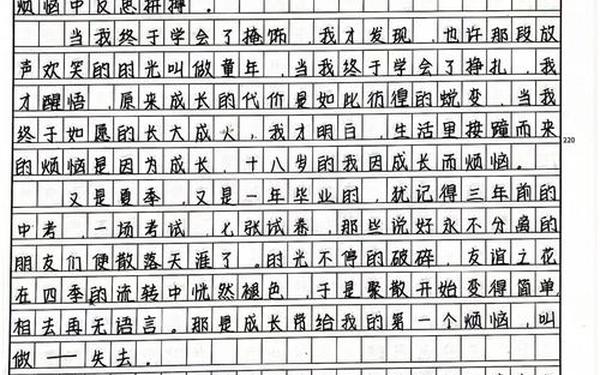 烦恼中反思拼搏。
当我终于学会了掩饰，我才发现，也许那段放
声欢笑的时光叫做童年，当我终于学会了挣扎，我
才醒悟，原来成长的代价是如此彷徨的蜕变，当我
终于如愿的长大成火，我才明白，生活里接踵而来
的烦恼是因为成长，十八岁的我因成长而烦恼。
220
又是夏季，又是一年毕业时，犹记得三年前的
中考，一场考试，七张试卷，那些说好永不分离的
朋友们便散落天涯了。时光不停的破碎，友谊之花
在四季的流转中恍然褪色，于是聚散开始变得简单，
相去再无语言。那是成长带给我的第一个烦恼，叫
做——失去。